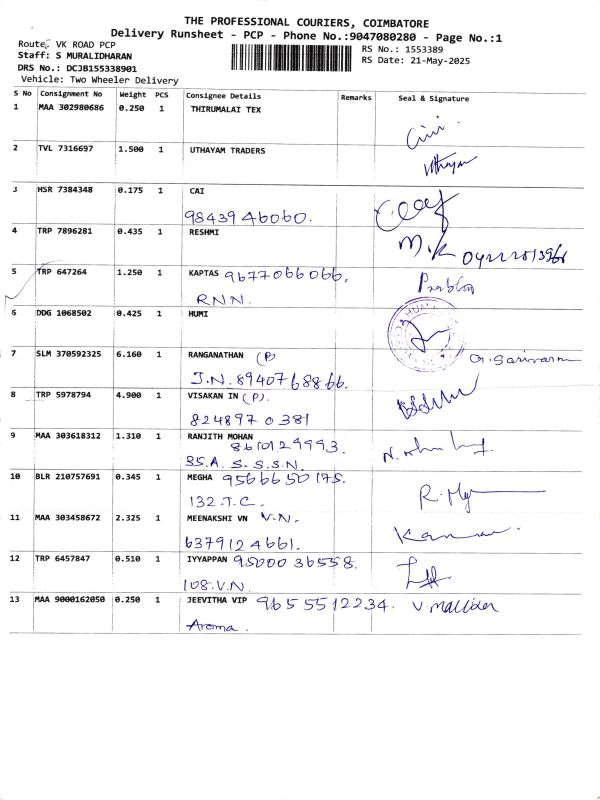 THE PROFESSIONAL COURIERS, COIMBATORE
Delivery Runsheet - PCP - Phone No.:9047080280 - Page No.:1
Route: VK ROAD PCP
RS No.: 1553389
Staff: S MURALIDHARAN
RS Date: 21-May-2025
DRS No.: DCJB155338901
Vehicle: Two Wheeler Delivery
S No Consignment No Weight PCS Consignee Details Remarks Seal & Signature
1 MAA 302980686 0.250 1 THIRUMALAI TEX
2 TVL 7316697 1.500 1 UTHAYAM TRADERS
Uthayam
3 HSR 7384348 0.175 1 CAI
9843946060.
4 TRP 7896281 0.435 1 RESHMI
M.K
5 TRP 647264 1.250 1 KAPTAS 9677066066,
RNN.
6 DDG 1068502 0.425 1 HUMI
7 SLM 370592325 6.160 1 RANGANATHAN (P)
J.N. 8940768866.
8 TRP 5978794 4.900 1 VISAKAN IN (P).
8248970381
9 MAA 303618312 1.310 1 RANJITH MOHAN
8610129993.
35.A. S.S.S.N.
10 BLR 210757691 0.345 1 MEGHA 9566650175.
132.T.C.
11 MAA 303458672 2.325 1 MEENAKSHI VN V.N.
6379124661.
12 TRP 6457847 0.510 1 IYYAPPAN 9500036558.
108.V.N.
13 MAA 9000162050 0.250 1 JEEVITHA VIP 9655512234.
Aroma.